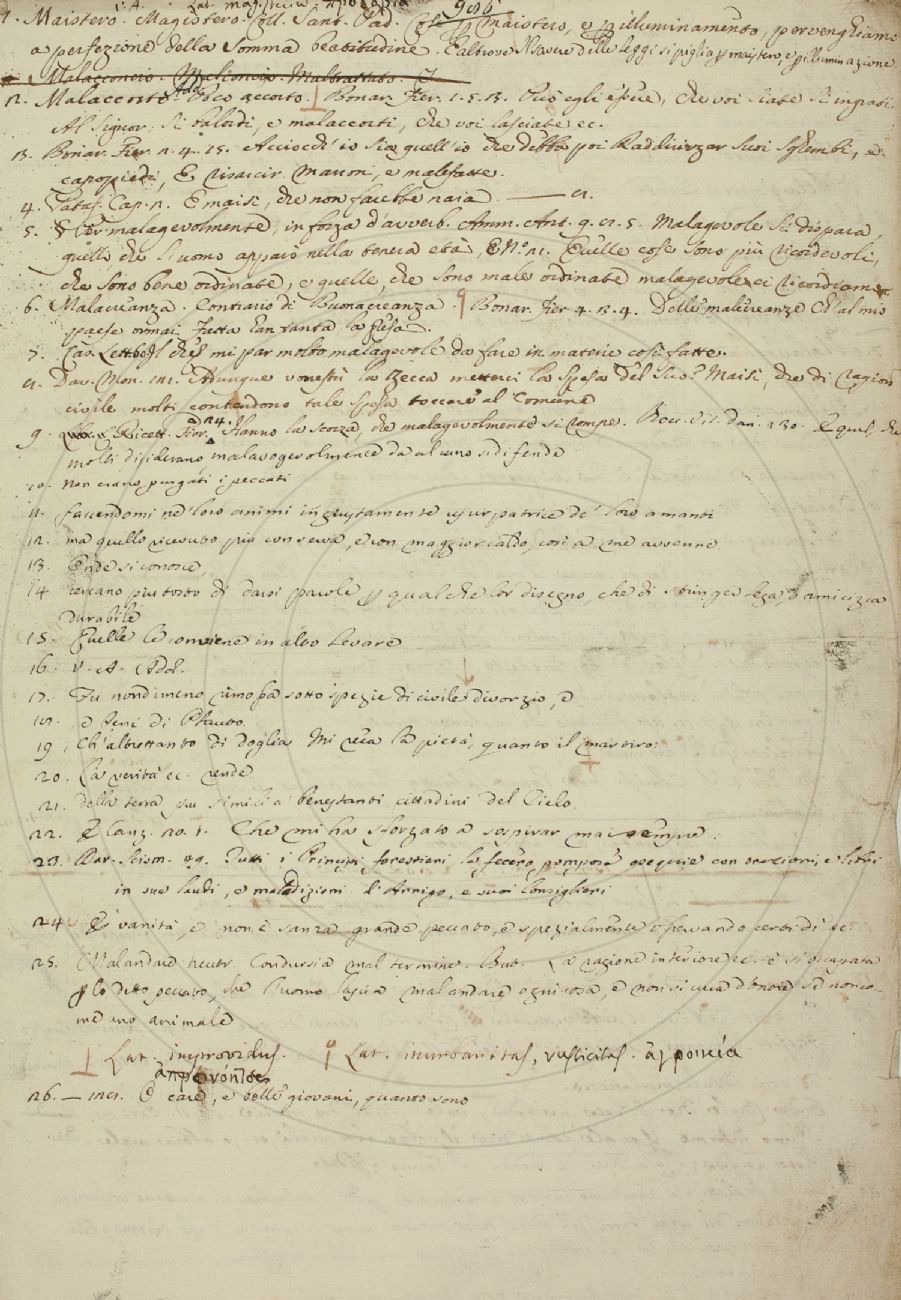 V. A. Lat.
1. Maistero. Magistero. Coll. Sant. Pad. maistero, e illuminamento, pervenghiamo
a perfezione della somma beatitudine. E altrove delle leggi si piglia p maistero, e p illuminazione.
Malacconcio. Malinconia. Malbrattato.
2. Malaccorto Add. Poco accorto. Bonar. Fier. 1. 5. 13. Può egli essere, che voi siate sì ingrati
Al Signor, sì balordi, e malaccorti, che voi lasciate ec.
3. Bonar. Fier. 2. 4. 15. Acciocch' io sia quell' io che debba poi Raddirizzar suoi sghembi, e
capopiedi, E marron, e malefatte.
4. Pataf. Cap. 2. E maisì, che non farebbe naia.
5. § Per malagevolmente, in forza d'avverb. Amm. Ant. 9. 8. 5. Malagevole si dispara,
quello, che l'uomo apparò nella tenera età, E N.º Quelle cose sono più ricordevoli,
che sono bene ordinate, e quelle, che sono male ordinate malagevole ci ricordiam
6. Malacreanza. Contrario di Buonacreanza. Bonar. Fier. 4. 5. 4. Delle malecreanze Ch' al mio
paese ormai fatta han tanta la presa.
7. Car. Lett. che mi par molto malagevole da fare in materie così fatte.
8. Dav. Mon. Adunque vorresti la Zecca metterci la spesa del suo? Maisì, che di ragion
civile molti contendono tale spesa toccare al Comune
9. Ricett. Fior. Hanno la scorza, che malagevolmente si rompe. Bocc. E quel, che
molti disiderano malavogevolmente da alcuno si difende
10. non erano purgati i peccati
11. faccendomi ne' loro animi ingiustamente usurpatrice de' loro amanti
12. ma quello ricevuto più conserva, e con maggior caldo, così a me avvenne
13. Onde si conosce,
14. cercano piuttosto di darsi parole p qualche lor disegno, che di stringer lega, o amicizia
durabile
15. Quelle le conviene in alto levare
16. V. A. Add.
17. Fu nondimeno rimossa sotto spezie di civile divorzio, e
18. e servi di Plauto.
19. Ch' altrettanto di doglia Mi reca la pietà, quanto il martiro.
20. La verità ec. rende
21. della terra, su simili a benestanti cittadini del Cielo.
22. E Canz. 20. 1. Che mi ha sforzato a sospirar mai sempre.
23. Dav. Scism. 29. Tutti i Principi forestieri le fecero pompose esequie con orazioni, e libri
in sue laudi, e maladizioni d'Arrigo, e suoi Consiglieri
24. E vanità, e non è sanza grande peccato, e spezialmente osservando certi dì ec
25. Malandare neutr. Condursi a mal termine. But. La ragione interiore ec. è sì occupata
p lo detto peccato, che l'uomo lascia malandare ogni cosa, e non si cura d'onore se non co-
me uno animale
Lat. improvidus. Lat. inurbanitas, rusticitas. ἀγροικία
ἀπρονόητος
26. — 128. O care, e belle giovani, quanto sono